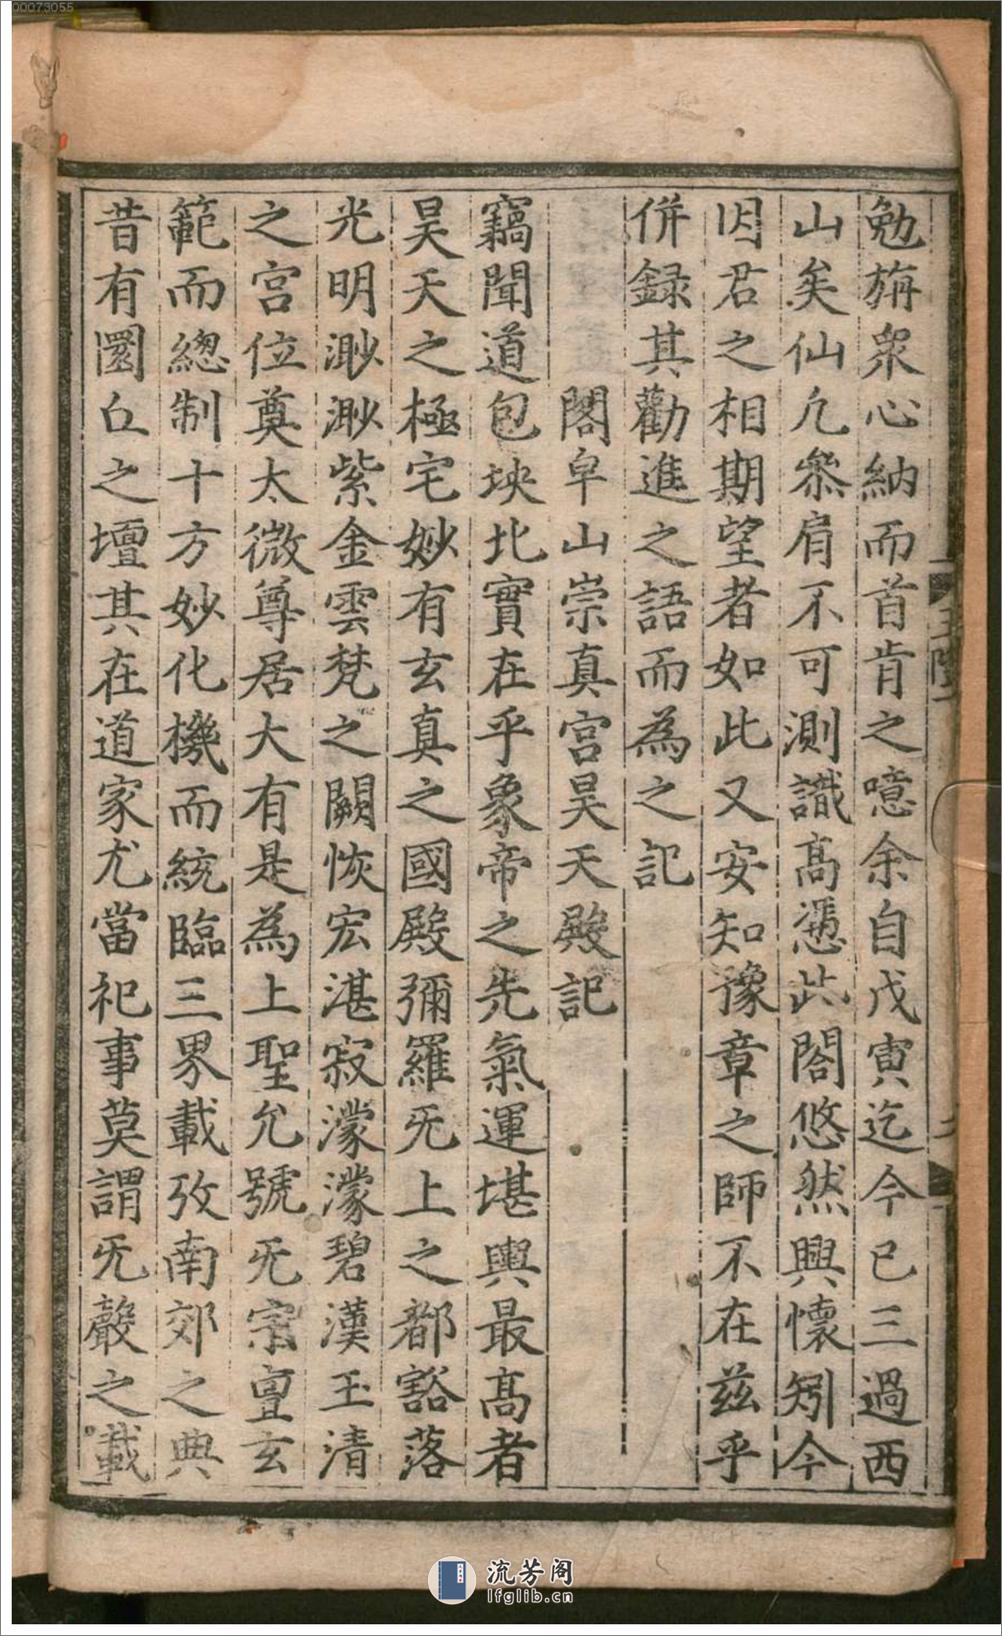 00073055
勉旃衆心納而首肯之噫余自戊寅迄今已三過西
山矣仙凢叅肩不可測識髙凴此閤悠然興懷矧今
因君之相期望者如此又安知豫章之師不在兹乎
併録其勸進之語而為之記
閤皁山崇真宫昊天殿記
竊聞道包坱圠實在乎象帝之先氣運堪輿最髙者
昊天之極宅妙有玄真之國殿彌羅旡上之都豁落
光明渺渺紫金雲梵之闕恢宏湛寂濛濛碧漢玉清
之宫位奠太微尊居大有是為上聖允號旡宗亶玄
範而總制十方妙化機而統臨三界載攷南郊之典
昔有圜丘之壇其在道家尤當祀事莫謂旡聲之載
流芳阁
lfglib.cn